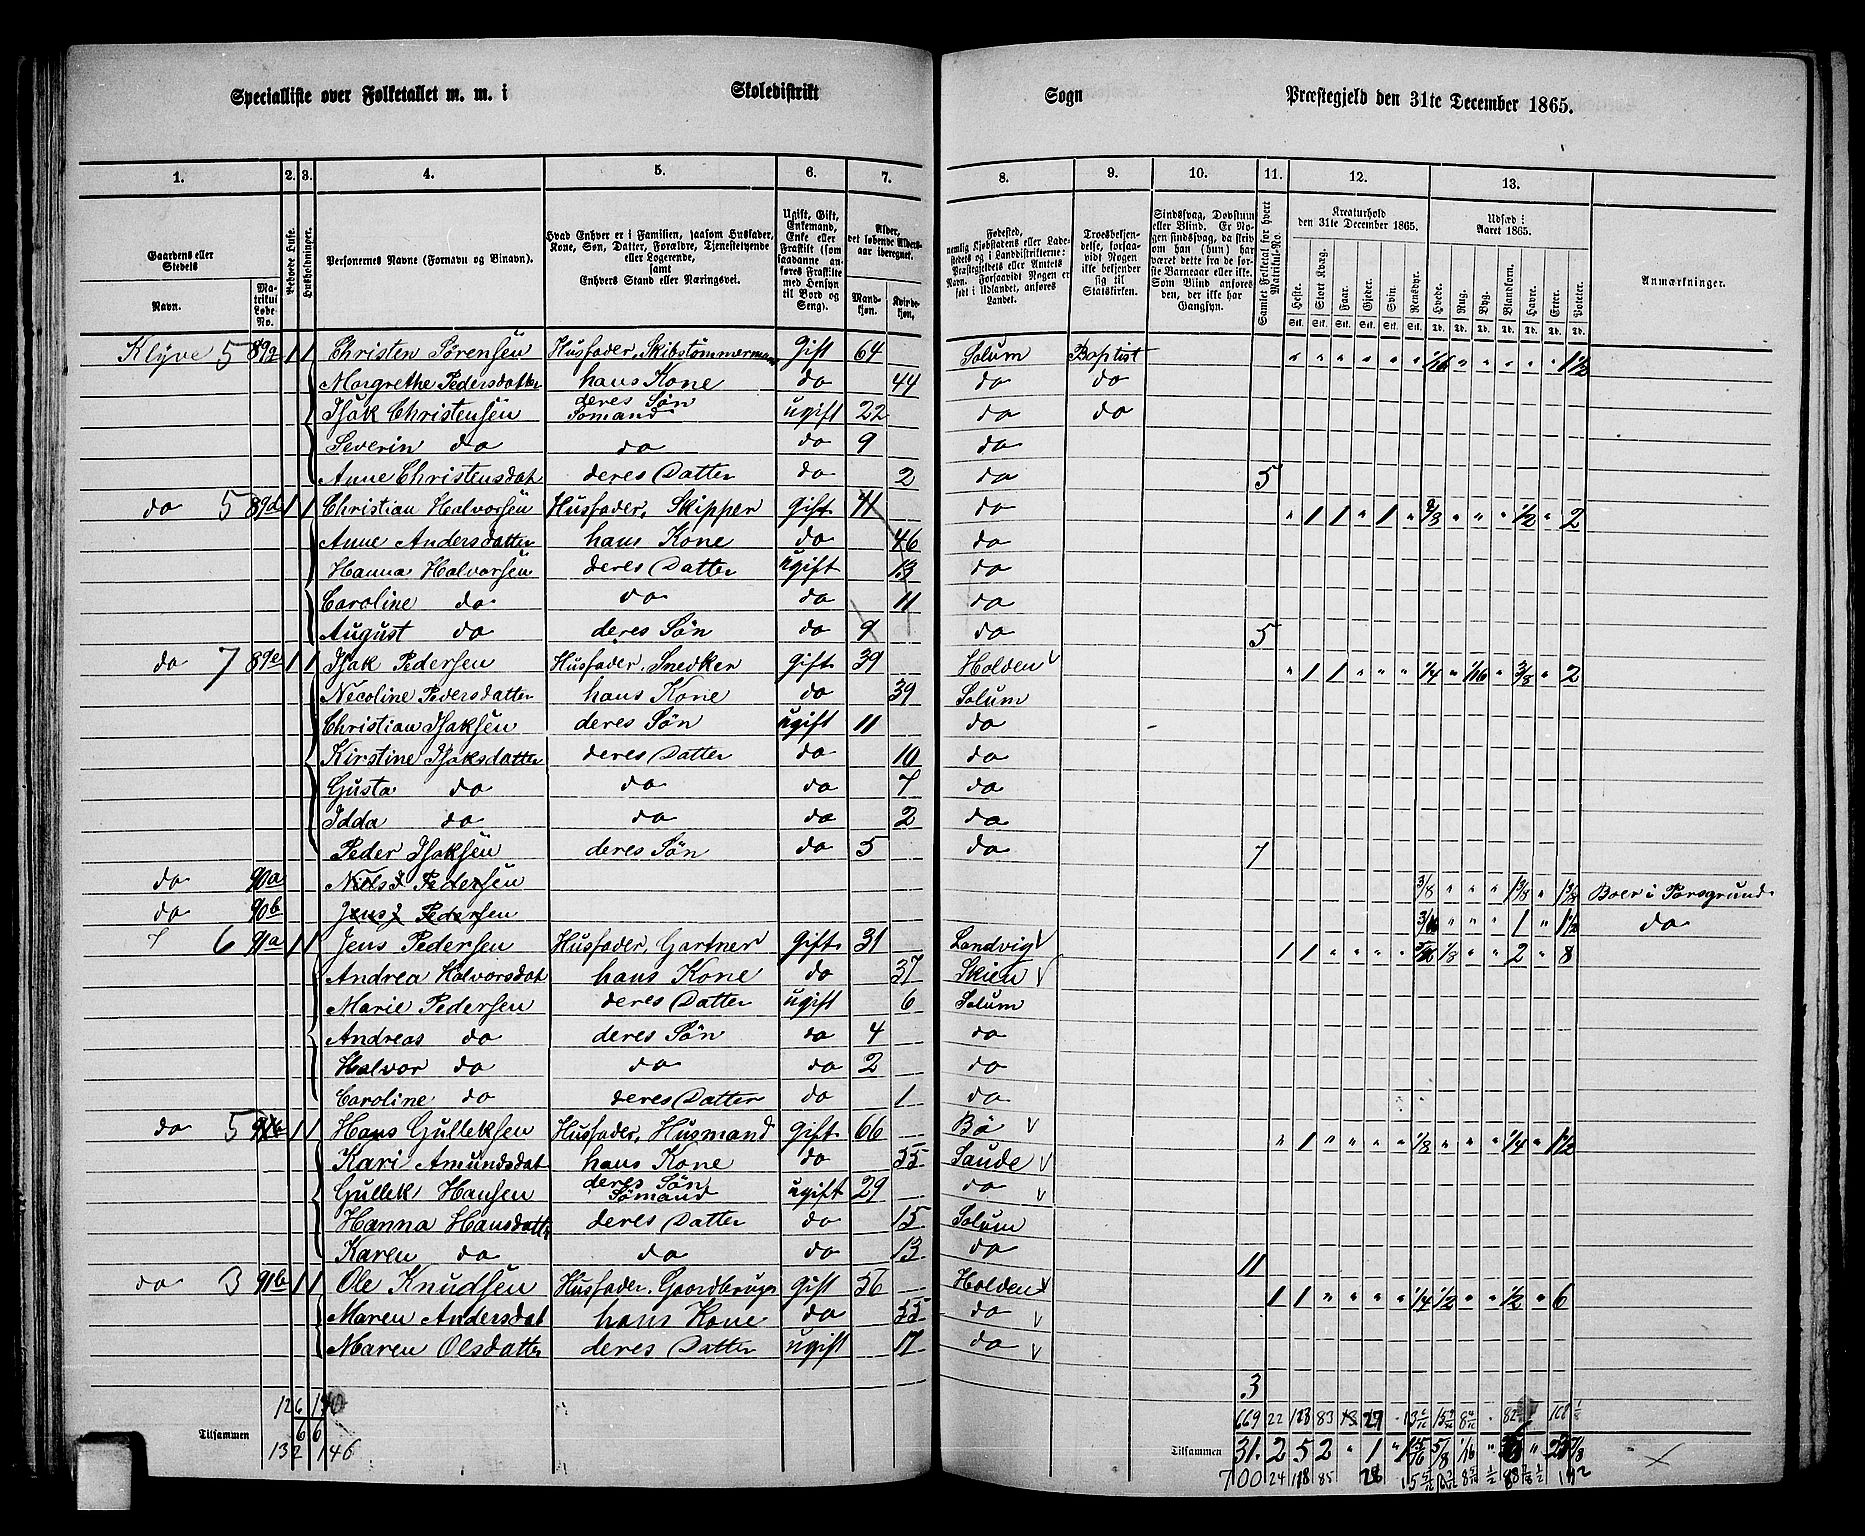 Specialliste over Folketallet m. m. i Skoledistrikt Sogn Præstegjeld den 31te December 1865.
1. 2. 3. 4. 5. 6. 7. 8. 9. 10. 11. 12. 13.
Gaardens eller Stedets
Navn.
Matrikul Løbe-No.
Beboede Huse.
Husholdninger.
Personernes Navne (Fornavn og Binavn).
Hvad Enhver er i Familien, saasom Husfader, Kone, Søn, Datter, Forældre, Tjenestetyende eller Logerende, samt Enhvers Stand eller Næringsvei.
Ugift, Gift, Enkemand, Enke eller Fraskilt (som saadanne anføres Fraskilte med Hensyn til Bord og Seng).
Alder, det løbende Aldersaar iberegnet.
Mandkjøn. Kvindekjøn.
Fødested, nemlig Kjøbstadens eller Ladestedets og i Landdistrikterne: Præstegjeldets eller Amtets Navn. Forsaavidt Nogen er født i Udlandet, anføres Landet.
Troesbekjendelse, forsaavidt Nogen ikke bekjender sig til Statskirken.
Sindssvag, Døvstum eller Blind. Er Nogen sindssvag, da skrives om han (hun) har været dette fra de første Barneaar eller ikke. Som Blind anføres den, der ikke har Gangsyn.
Samlet Folketal for hvert Matrikul-No.
Kreaturhold den 31te December 1865.
Heste. Stort Kvæg. Faar. Gjeder. Svin. Rensdyr.
Udsæd i Aaret 1865.
Hvede. Rug. Byg. Blandkorn. Havre. Erter. Poteter.
Anmærkninger.
Klyve 5 89a 1 1 Christen Sørensen Husfader, Skibstømmermand Gift 64 Solum Baptist " " " " " " 1/16 " " " " " 1 1/2
Margrethe Pedersdatter hans Kone do 44 do do
Isak Christensen deres Søn Sømand ugift 22 do do
Severin do do do 9 do
Anne Christensdat deres Datter do 2 do 5
do 5 89d 1 1 Christian Halvorsen Husfader, Skipper Gift 41 do " 1 1 " 1 " " " " 1/2 " 2
Anne Andersdatter hans Kone do 46 do
Hanna Halvorsen deres Datter ugift 13 do
Caroline do do do 11 do
August do deres Søn do 9 do 5
do 7 89e 1 1 Isak Pedersen Husfader, Snedker Gift 39 Holden " 1 1 " " " 1/4 " 1/16 " 3/8 " 2
Necoline Pedersdatter hans Kone do 39 Solum
Christian Isaksen deres Søn ugift 11 do
Kirstine Isaksdatter deres Datter do 10 do
Gusta do do do 7 do
Idda do do do 2 do
Peder Isaksen deres Søn do 5 do 7
do 90a Niels J Pedersen 3/8 " " " 1 3/8 " Boer i Porsgrund
do 90b Jens J Pedersen 3/16 " " " 1 " 1 1/2 do
6 91a 1 1 Jens Pedersen Husfader, Gartner Gift 31 Landvig 1 1 " " " " 5/16 1/8 " " 2 " 8
Andrea Halvorsdat hans Kone do 37 Skien
Marie Pedersen deres Datter ugift 6 Solum
Andreas do deres Søn do 4 do
Halvor do do do 2 do
Caroline do deres Datter do 1 do
do 5 1 1 Hans Gulleksen Husfader, Husmand Gift 66 Bø " 1 " " " " 1/8 " " " 1/4 " 1 1/2
Kari Amundsdat hans Kone do 55 Saude
Gullek Hansen deres Søn Sømand ugift 29 do
Hanna Hansdatter deres Datter do 15 Solum
Karen do do do 13 do 11
do 3 91b 1 1 Ole Knudsen Husfader, Gaardbruger Gift 56 Holden 1 1 " " " " 1/4 1/2 " " 1/2 " 6
Maren Andersdat hans Kone do 55 do
Maren Olsdatter deres Datter ugift 17 do
3
126 140 669 22 128 83
6 6
Tilsammen Tilsammen 31. 2 5 2 " 1 "
132 146 700 24 85